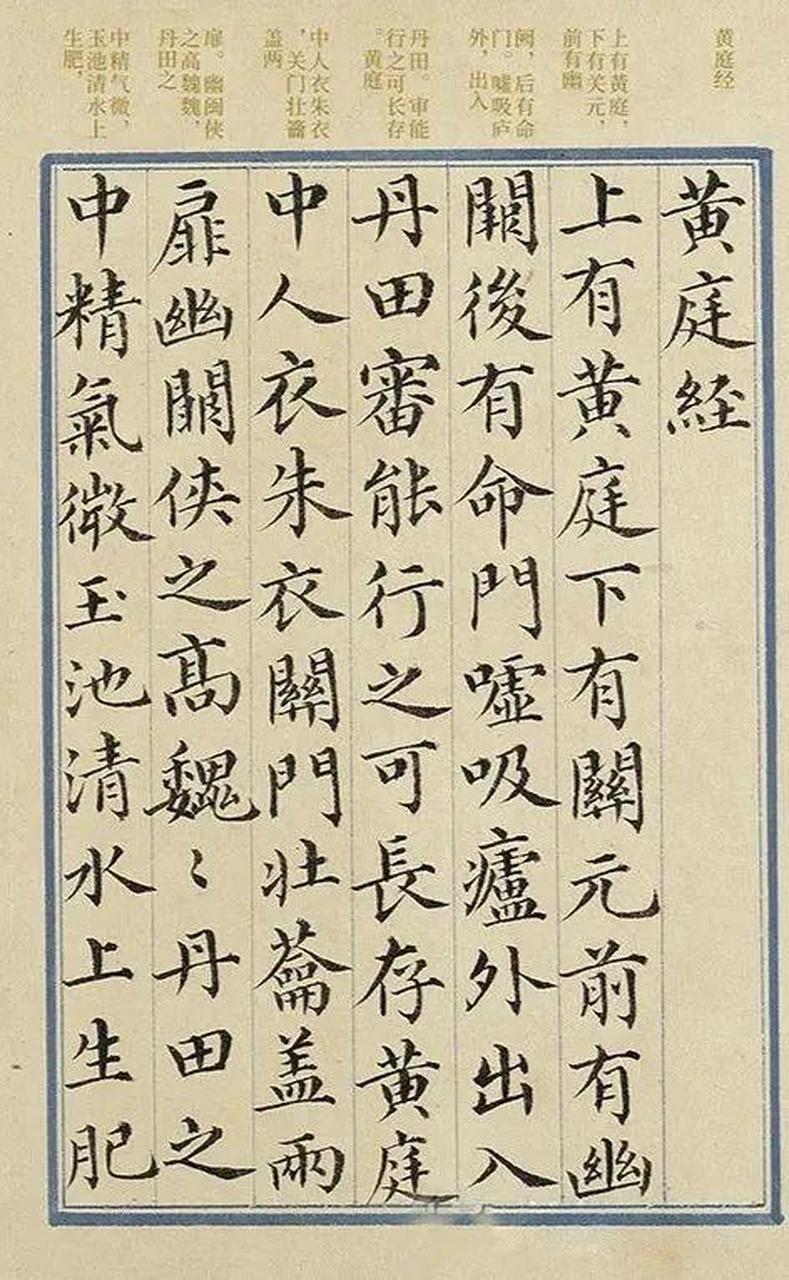 黄庭经
上有黄庭，
下有关元，
前有幽
阙，后有命
门。嘘吸庐
外，出入
丹田。审能
行之可长存
。黄庭
中人衣朱衣
，关门壮籥
盖两
扉。幽阙侠
之高魏魏，
丹田之
中精气微，
玉池清水上
生肥，
黄庭経
上有黄庭下有關元前有幽
闕後有命門嘘吸廬外出入
丹田審能行之可長存黄庭
中人衣朱衣關門壮蘥盖兩
扉幽闕侠之髙魏〻丹田之
中精氣微玉池清水上生肥